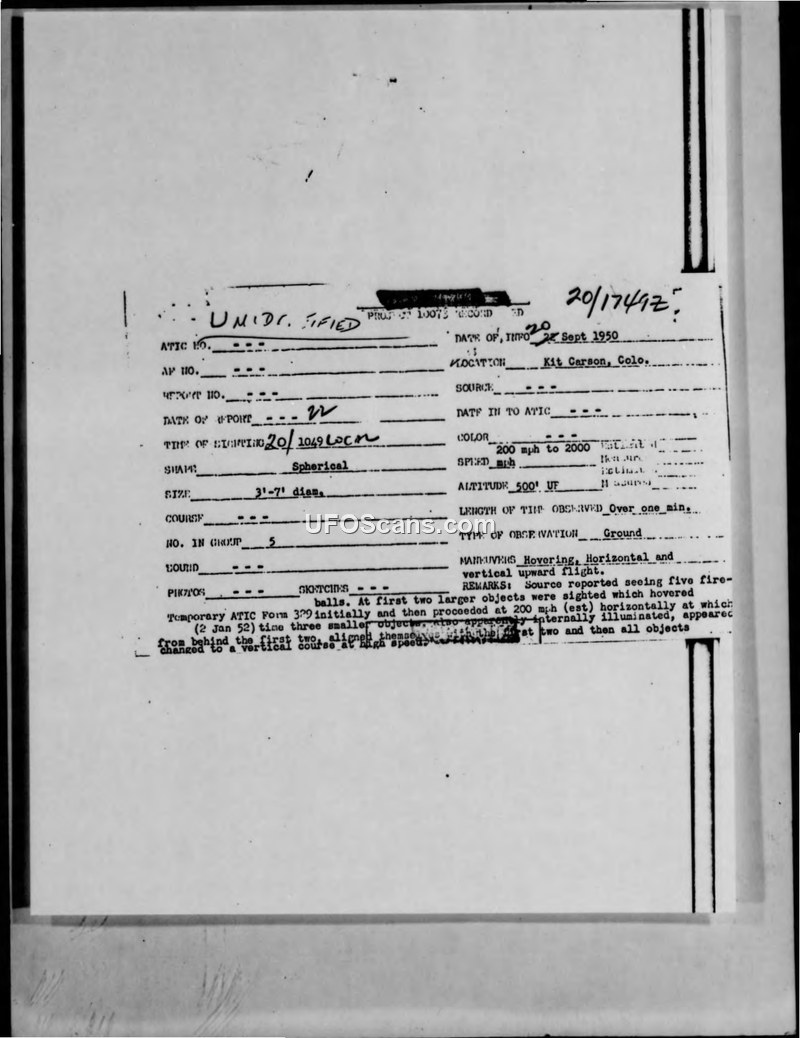 20/1749Z?
UNIDENTIFIED
PROJECT 10073 RECORD
ATIC NO. - - -
AF NO. - - -
REPORT NO. - - -
DATE OF REPORT - - - 22
TIME OF SIGHTING 20/ 1049 LOCAL
SHAPE Spherical
SIZE 3'-7' diam.
COURSE - - -
NO. IN GROUP 5
SOUND - - -
PHOTOS - - - SKETCHES - - -
Temporary ATIC Form 329
(2 Jan 52)
DATE OF INFO 20 Sept 1950
LOCATION Kit Carson, Colo.
SOURCE - - -
DATE IN TO ATIC - - -
COLOR - - -
200 mph to 2000
SPEED mph
ALTITUDE 500' UF
LENGTH OF TIME OBSERVED Over one min.
TYPE OF OBSERVATION Ground
MANEUVERS Hovering, Horizontal and
vertical upward flight.
REMARKS: Source reported seeing five fire-
balls. At first two larger objects were sighted which hovered
initially and then proceeded at 200 mph (est) horizontally at which
time three smaller objects, also apparently internally illuminated, appeared
from behind the first two, aligned themselves with the first two and then all objects
changed to a vertical course at high speed.
UFOScans.com